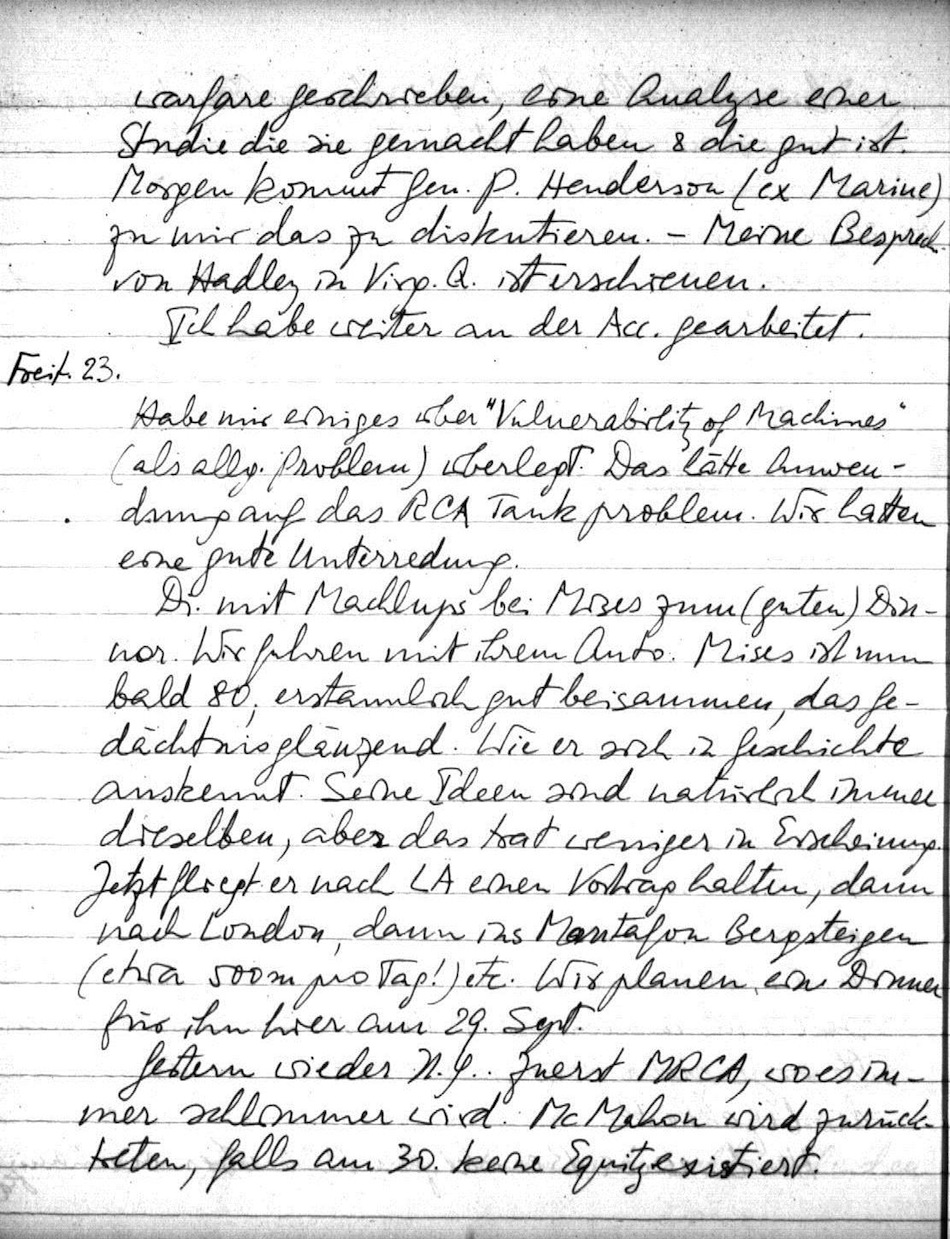 warfare geschrieben, eine Analyse einer
Studie die sie gemacht haben & die gut ist.
Morgen kommt Gen. P. Henderson (ex Marine)
zu mir das zu diskutieren. – Meine Besprech.
von Hadley in Virg. Q. ist erschienen.
Ich habe weiter an der Acc. gearbeitet.
Freit. 23.
Habe mir einiges über "Vulnerability of Machines"
(als allg. Problem) überlegt. Das hätte Anwen-
dung auf das RCA Tank problem. Wir hatten
eine gute Unterredung.
Di. mit Machlups bei Mises zum (guten) Din-
ner. Wir fuhren mit ihrem Auto. Mises ist nun
bald 80, erstaunlich gut beisammen, das Ge-
dächtnis glänzend. Wie er sich in Geschichte
auskennt. Seine Ideen sind natürlich immer
dieselben, aber das trat weniger in Erscheinung.
Jetzt fliegt er nach LA einen Vortrag halten, dann
nach London, dann ins Montafon Bergsteigen
(etwa 500m pro Tag!) etc. Wir planen ein Dinner
für ihn hier am 29. Sept.
Gestern wieder N.Y.. Zuerst MRCA, wo es im-
mer schlimmer wird. McMahon wird zurück-
treten, falls am 30. keine Equity existiert.